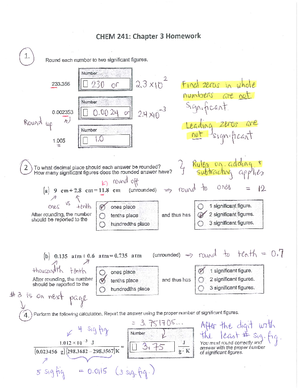 CHEM 241: Chapter 3 Homework
1.
Round each number to two significant figures.
Number
230.356
230 or 2.3 x10²
Final zeros in whole
numbers are not
significant
Number
0.002353
0.0024 or 2.4 x10⁻³
Leading zeros are
not significant
Round up
Number
1.005
1.0
2 To what decimal place should each answer be rounded?
How many significant figures does the rounded answer have?
Rules on adding &
subtracting applies
round off
(a) 9 cm + 2.8 cm = 11.8 cm (unrounded) ⇒ round to ones = 12
ones tenth
After rounding, the number
should be reported to the
ones place
tenths place
hundredths place
and thus has
1 significant figure.
2 significant figures.
3 significant figures.
(b) 0.135 atm + 0.6 atm = 0.735 atm (unrounded) ⇒ round to tenth = 0.7
thousandth tenth
After rounding, the number
should be reported to the
ones place
tenths place
hundredths place
and thus has
1 significant figure.
2 significant figures.
3 significant figures.
#3 is on next page
4 Perform the following calculation. Report the answer using the proper number of significant figures.
4 sig fig
= 3.751705...
After the digit with
the least # sig fig
Number
3.75
J
g · K
You must round correctly and
answer with the proper number
of significant figures.
5 sig fig
= 0.0115 (3 sig fig)